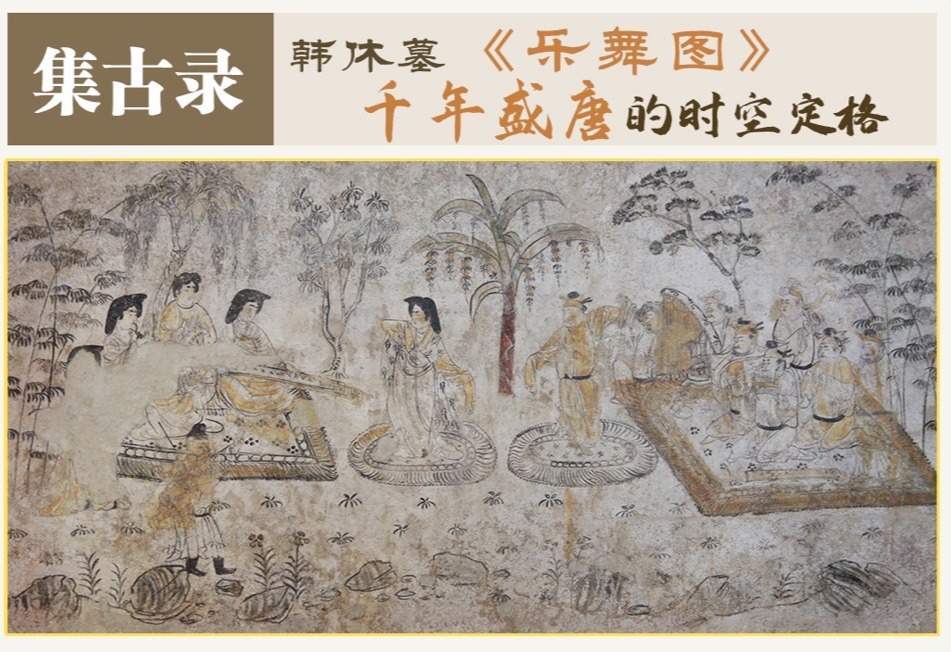 集古录
韩休墓《乐舞图》
千年盛唐的时空定格